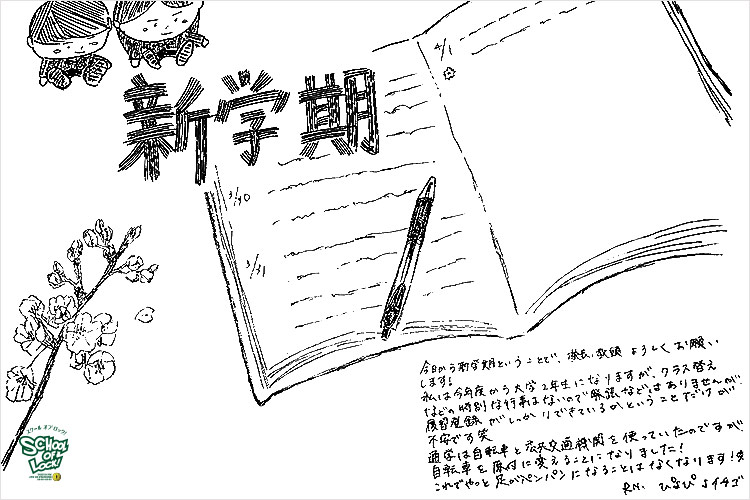 新学期
4/1
3/30
3/31
今日から新学期ということで、教頭 よろしくお願い
します!
私は今年度から大学2年生になりますが、クラス替え
などの特別な行事はないので緊張などはありませんが、
履修登録がしっかりできているかということだけが
不安です笑
通学は自転車と公共交通機関を使っていたのですが
自転車を原付に変えることになりました!
これでやっと足がパンパンになることはなくなります!
RN. ぴよぴよイチゴ
スクール オブ ロック!
SCHOOL
OF
LOCK!